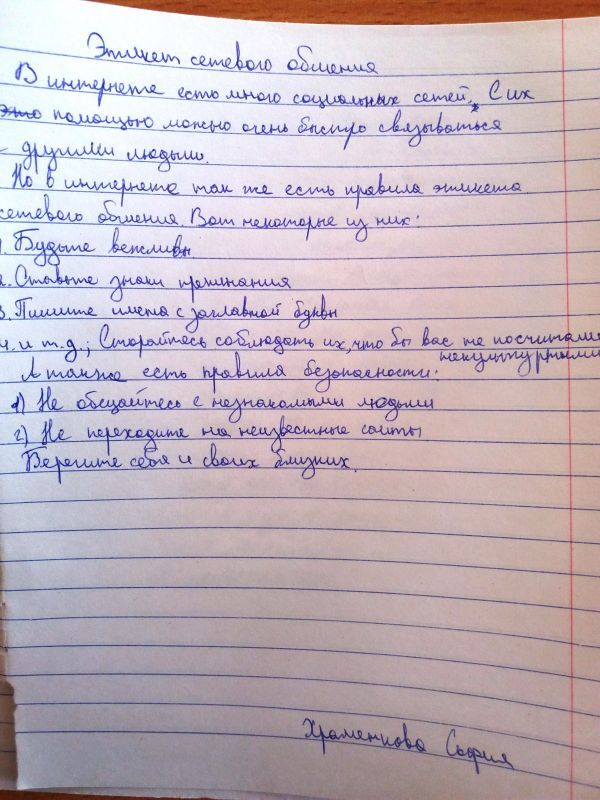 Этикет сетевого общения
В интернете есть много социальных сетей. С их
это помощью можно очень быстро связываться
с другими людьми.
Но в интернете так же есть правила этикета
сетевого общения. Вот некоторые из них:
1. Будьте вежливы
2. Ставьте знаки препинания
3. Пишите имена с заглавной буквы
4. и т.д.; Старайтесь соблюдать их, что бы вас не посчитали
некультурными
А также есть правила безопасности:
1) Не общайтесь с незнакомыми людьми
2) Не переходите на неизвестные сайты
Берегите себя и своих близких.
Храменкова София